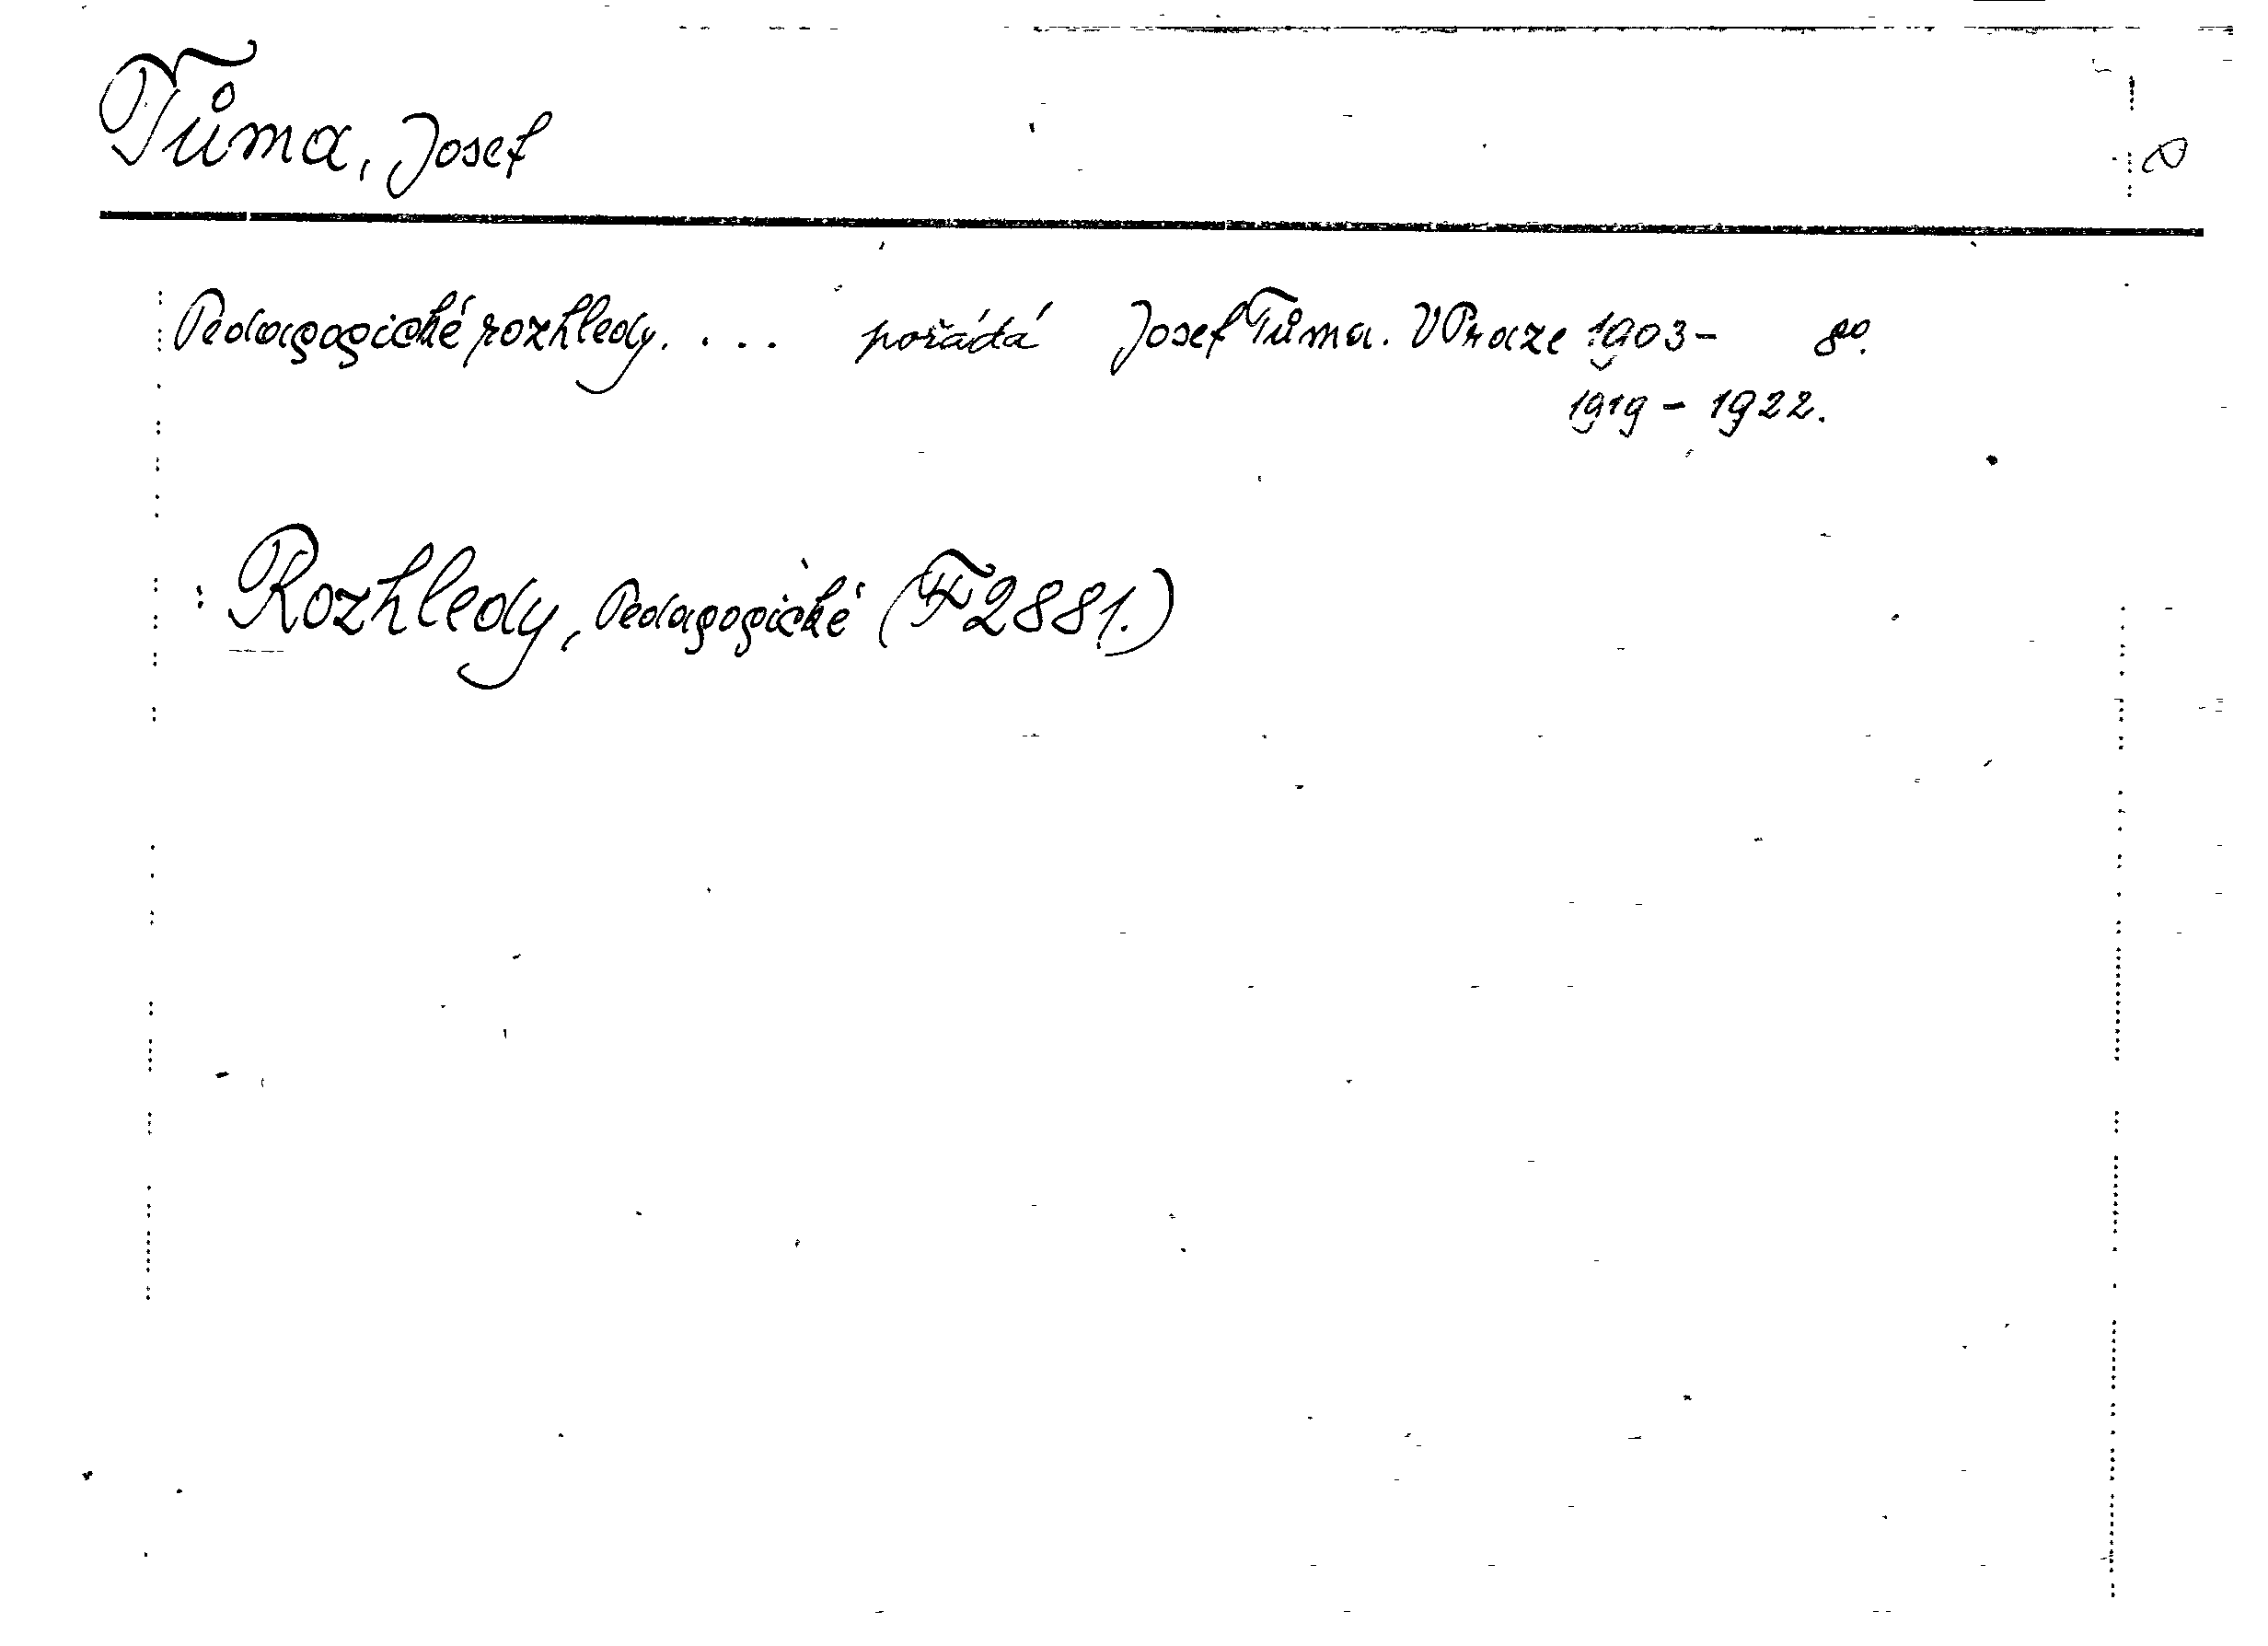 Tůma, Josef
Pedagogické rozhledy. ... pořádá Josef Tůma. V Praze 1903- 8º.
1919 - 1922.
: Rozhledy, Pedagogické (F 2881.)